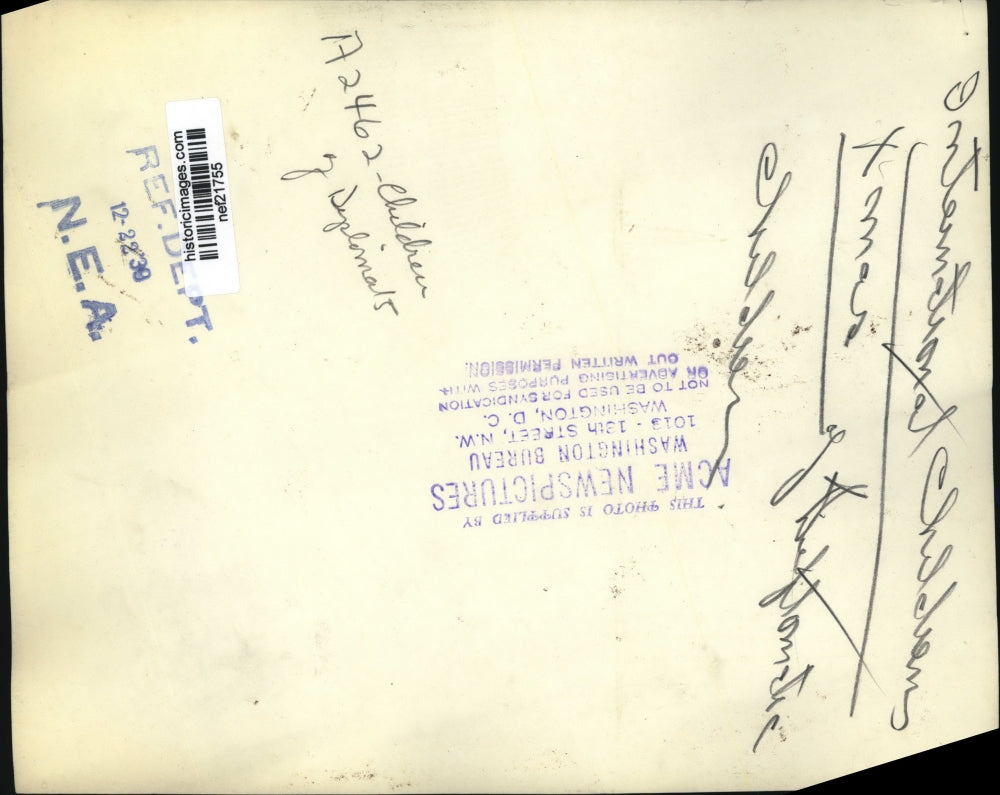 International Children
Xmas
Children
of Diplomats
A2462-Children
of Diplomats
historicimages.com
nef21755
REF. DEPT.
12-22-38
N.E.A.
THIS PHOTO IS SUPPLIED BY
ACME NEWSPICTURES
WASHINGTON BUREAU
1013 - 13th STREET, N.W.
WASHINGTON, D. C.
NOT TO BE USED FOR SYNDICATION
OR ADVERTISING PURPOSES WITH-
OUT WRITTEN PERMISSION.